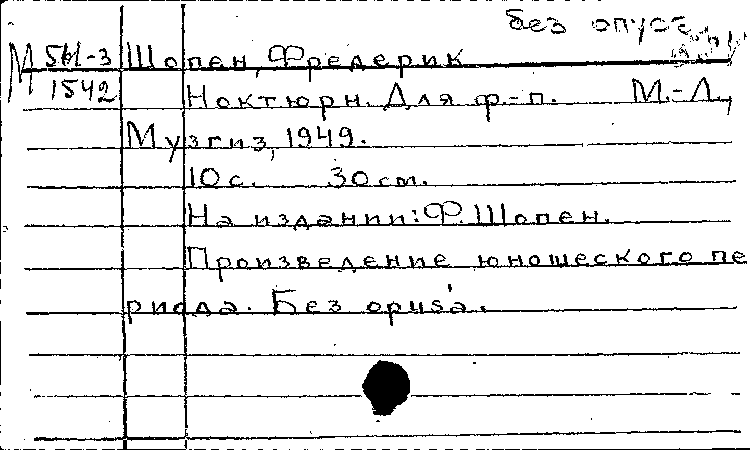 без опуса
М
Шопен, Фредерик
1542
Ноктюрн. Для ф.-п. М.-Л.,
Музгиз, 1949.
10 с. 30 см.
На издании: Ф. Шопен.
Произведение юношеского пе
риода. Без opus'a.